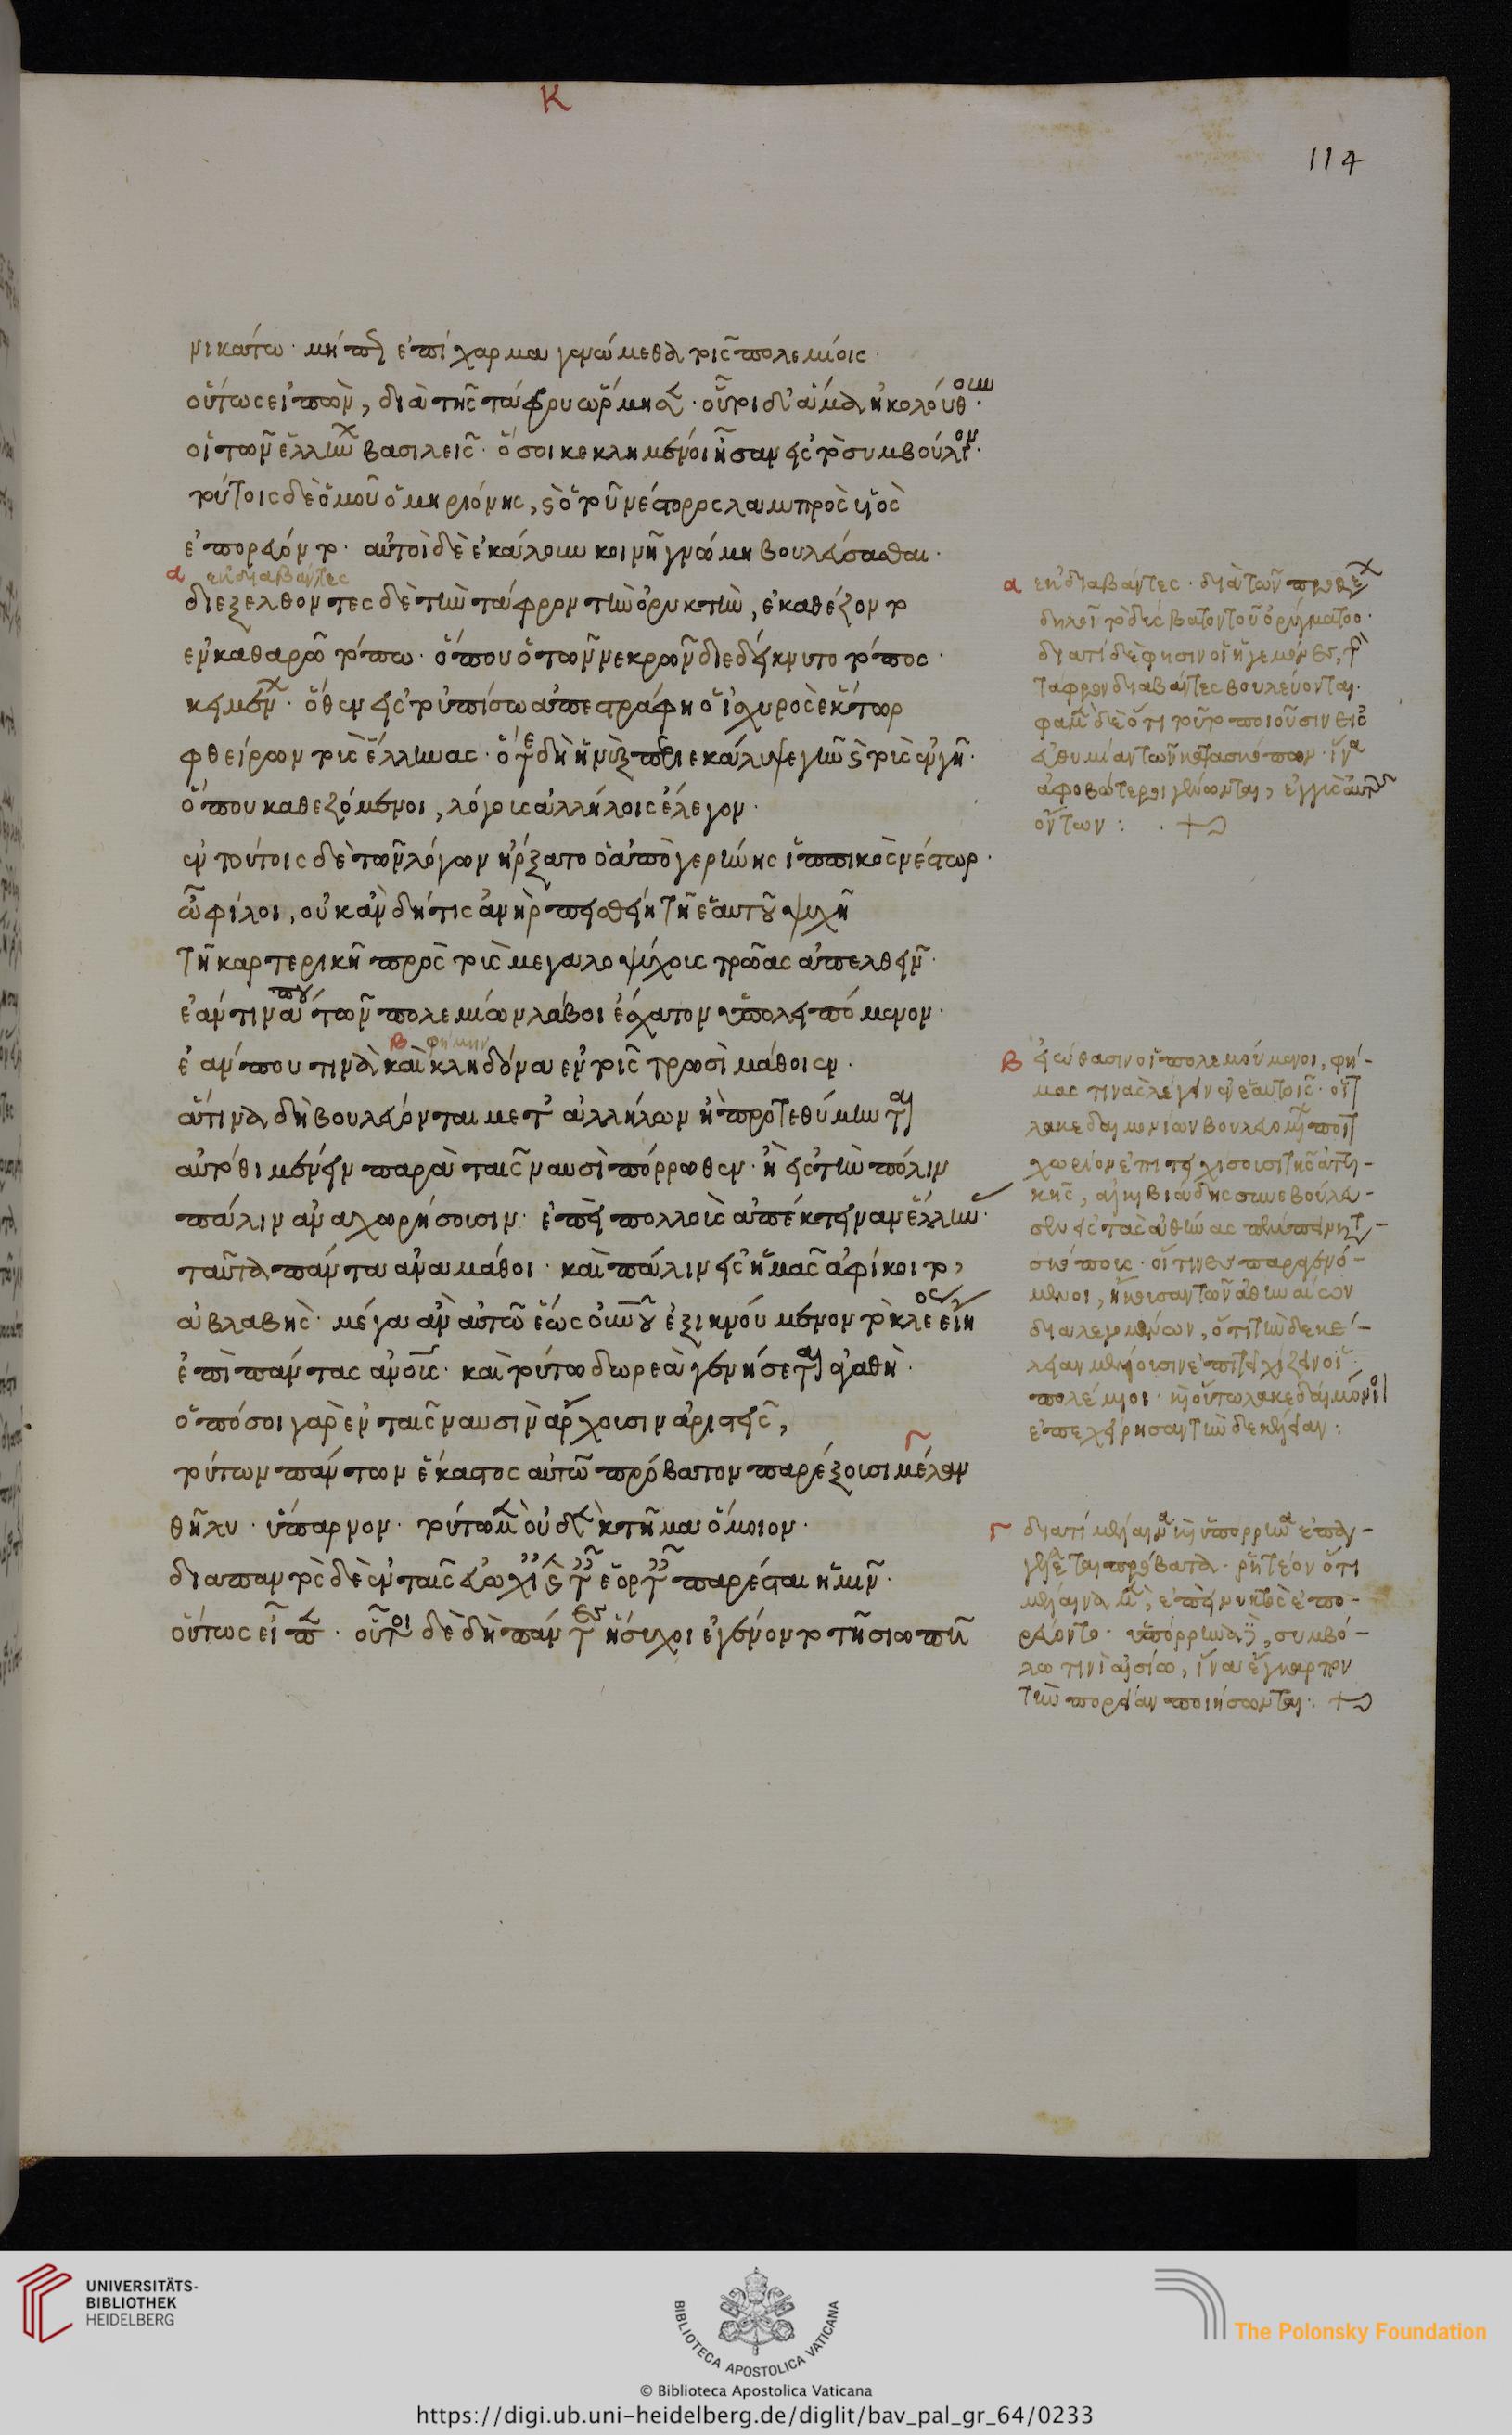 Κ
114
νικάτω· μήπως ἐπίχαρμα γενώμεθα τοῖς πολεμίοις·
οὕτως εἰπὼν, διὰ τῆς τάφρου ὥρμησεν· οὗτοι δ' ἅμα ἠκολούθουν·
οἱ τῶν ἑλλήνων βασιλεῖς· ὅσοι κεκλημένοι ἦσαν εἰς τὸ συμβούλιον·
τούτοις δὲ ὁμοῦ ὁ μηριόνης, καὶ ὁ τοῦ νέστορος λαμπρὸς υἱὸς
ἐπορεύοντο· αὐτοὶ δὲ ἐκάλουν κοινῇ γνώμῃ βουλεύσασθαι·
α ἐκδιαβάντες
διεξελθόντες δὲ τὴν τάφρον τὴν ὀρυκτὴν, ἐκαθέζοντο
ἐν καθαρῷ τόπῳ· ὅπου ὁ τῶν νεκρῶν διεδείκνυτο τόπος·
κειμένων· ὅθεν εἰς τοὐπίσω ἀπεστράφη ὁ ἰσχυρὸς ἕκτωρ
φθείρων τοὺς ἕλληνας· ὅτε δὴ ἡ νὺξ περιεκάλυψε γῆν καὶ τοὺς ἐν γῇ·
ὅπου καθεζόμενοι, λόγους ἀλλήλοις ἔλεγον·
ἐν τούτοις δὲ τῶν λόγων ἤρξατο ὁ ἀπὸ γερήνης ἱππικὸς νέστωρ·
ὦ φίλοι, οὐκ ἂν δή τις ἀνὴρ πεισθείη τῇ ἑαυτοῦ ψυχῇ
τῇ καρτερικῇ πρὸς τοὺς μεγαλοψύχους τρῶας ἀπελθεῖν·
ἐάν τινά που τῶν πολεμίων λάβοι ἔσχατον ὑπολειπόμενον·
β φήμην
ἐάν που τινὰ καὶ κληδόνα ἐν τοῖς τρωσὶ μάθοιεν·
ἅτινα δὴ βουλεύονται μετ' ἀλλήλων ἢ προτεθύμηνται
αὐτόθι μένειν παρὰ ταῖς ναυσὶ πόρρωθεν· ἢ εἰς τὴν πόλιν
πάλιν ἀναχωρήσουσιν· ἐπεὶ πολλοὺς ἀπέκτειναν ἕλληνας·
ταῦτα πάντα ἀναμάθοι· καὶ πάλιν εἰς ἡμᾶς ἀφίκοιτο,
ἀβλαβής· μέγα ἂν αὐτῷ ἕως οὐνοῦ ἐξικνούμενον τὸ κλέος εἴη
ἐπὶ πάντας ἀνθρώπους· καὶ τούτῳ δωρεὰ γενήσεται ἀγαθή·
ὁπόσοι γὰρ ἐν ταῖς ναυσὶν ἄρχουσιν ἀριστεῖς,
Γ
τούτων πάντων ἕκαστος αὐτῷ πρόβατον παρέξουσι μέλαν
θῆλυ· ὕπαρνον· τούτῳ μὲν οὐδὲν κτῆμα ὅμοιον·
διαπαντὸς δὲ ἐν ταῖς εὐωχίαις καὶ ταῖς ἑορταῖς παρέσται ἡμῖν·
οὕτως εἶπεν· οὗτοι δὲ δὴ πάντες ἥσυχοι ἐγένοντο τῇ σιωπῇ
α ἐκδιαβάντες· διὰ τῶν προθέσεων
δηλοῖ τὸ δύσβατον τοῦ ὀρύγματος·
διατί δέ φησιν οἱ ἡγεμόνες, τὴν
τάφρον διαβάντες βουλεύονται·
φαμὲν δὲ ὅτι τοῦτο ποιοῦσιν εἰς
εὐθυμίαν τῶν κατασκόπων· ἵνα
ἀφοβώτεροι γένωνται, ἐγγὺς αὐτῶν
ὄντων:
β εἰώθασιν οἱ πολεμούμενοι, φή-
μας τινὰς λέγειν ἐν ἑαυτοῖς· ὅτι
λακεδαιμονίων βουλευομένων ποῖον
χωρίον ἐπιτειχίσουσι τῆς ἀττι-
κῆς, ἀλκιβιάδης συνεβούλευ-
σεν εἰς τὰς ἀθήνας πέμπειν κατα-
σκόπους· οἵτινες παραγενό-
μενοι, ἤκουσαν τῶν ἀθηναίων
διαλεγομένων, ὅτι τὴν δεκέ-
λειαν μέλλουσιν ἐπιτειχίζειν οἱ
πολέμιοι· καὶ οὕτω λακεδαιμόνιοι
ἐπεχείρησαν τὴν δεκέλειαν:
Γ διατί μέλαιναν καὶ ὑπόρρηνα ἐπαγ-
γέλλεται πρόβατα· ῥητέον ὅτι
μέλαινα μὲν, ἐπεὶ νυκτὸς ἐπο-
ρεύοντο· ὑπόρρηνα δὲ, συμβό-
λῳ τινὶ αἰσίῳ, ἵνα ἔγκαρπον
τὴν πορείαν ποιήσωνται:
UNIVERSITÄTS-
BIBLIOTHEK
HEIDELBERG
BIBLIOTECA APOSTOLICA VATICANA
© Biblioteca Apostolica Vaticana
The Polonsky Foundation
https://digi.ub.uni-heidelberg.de/diglit/bav_pal_gr_64/0233